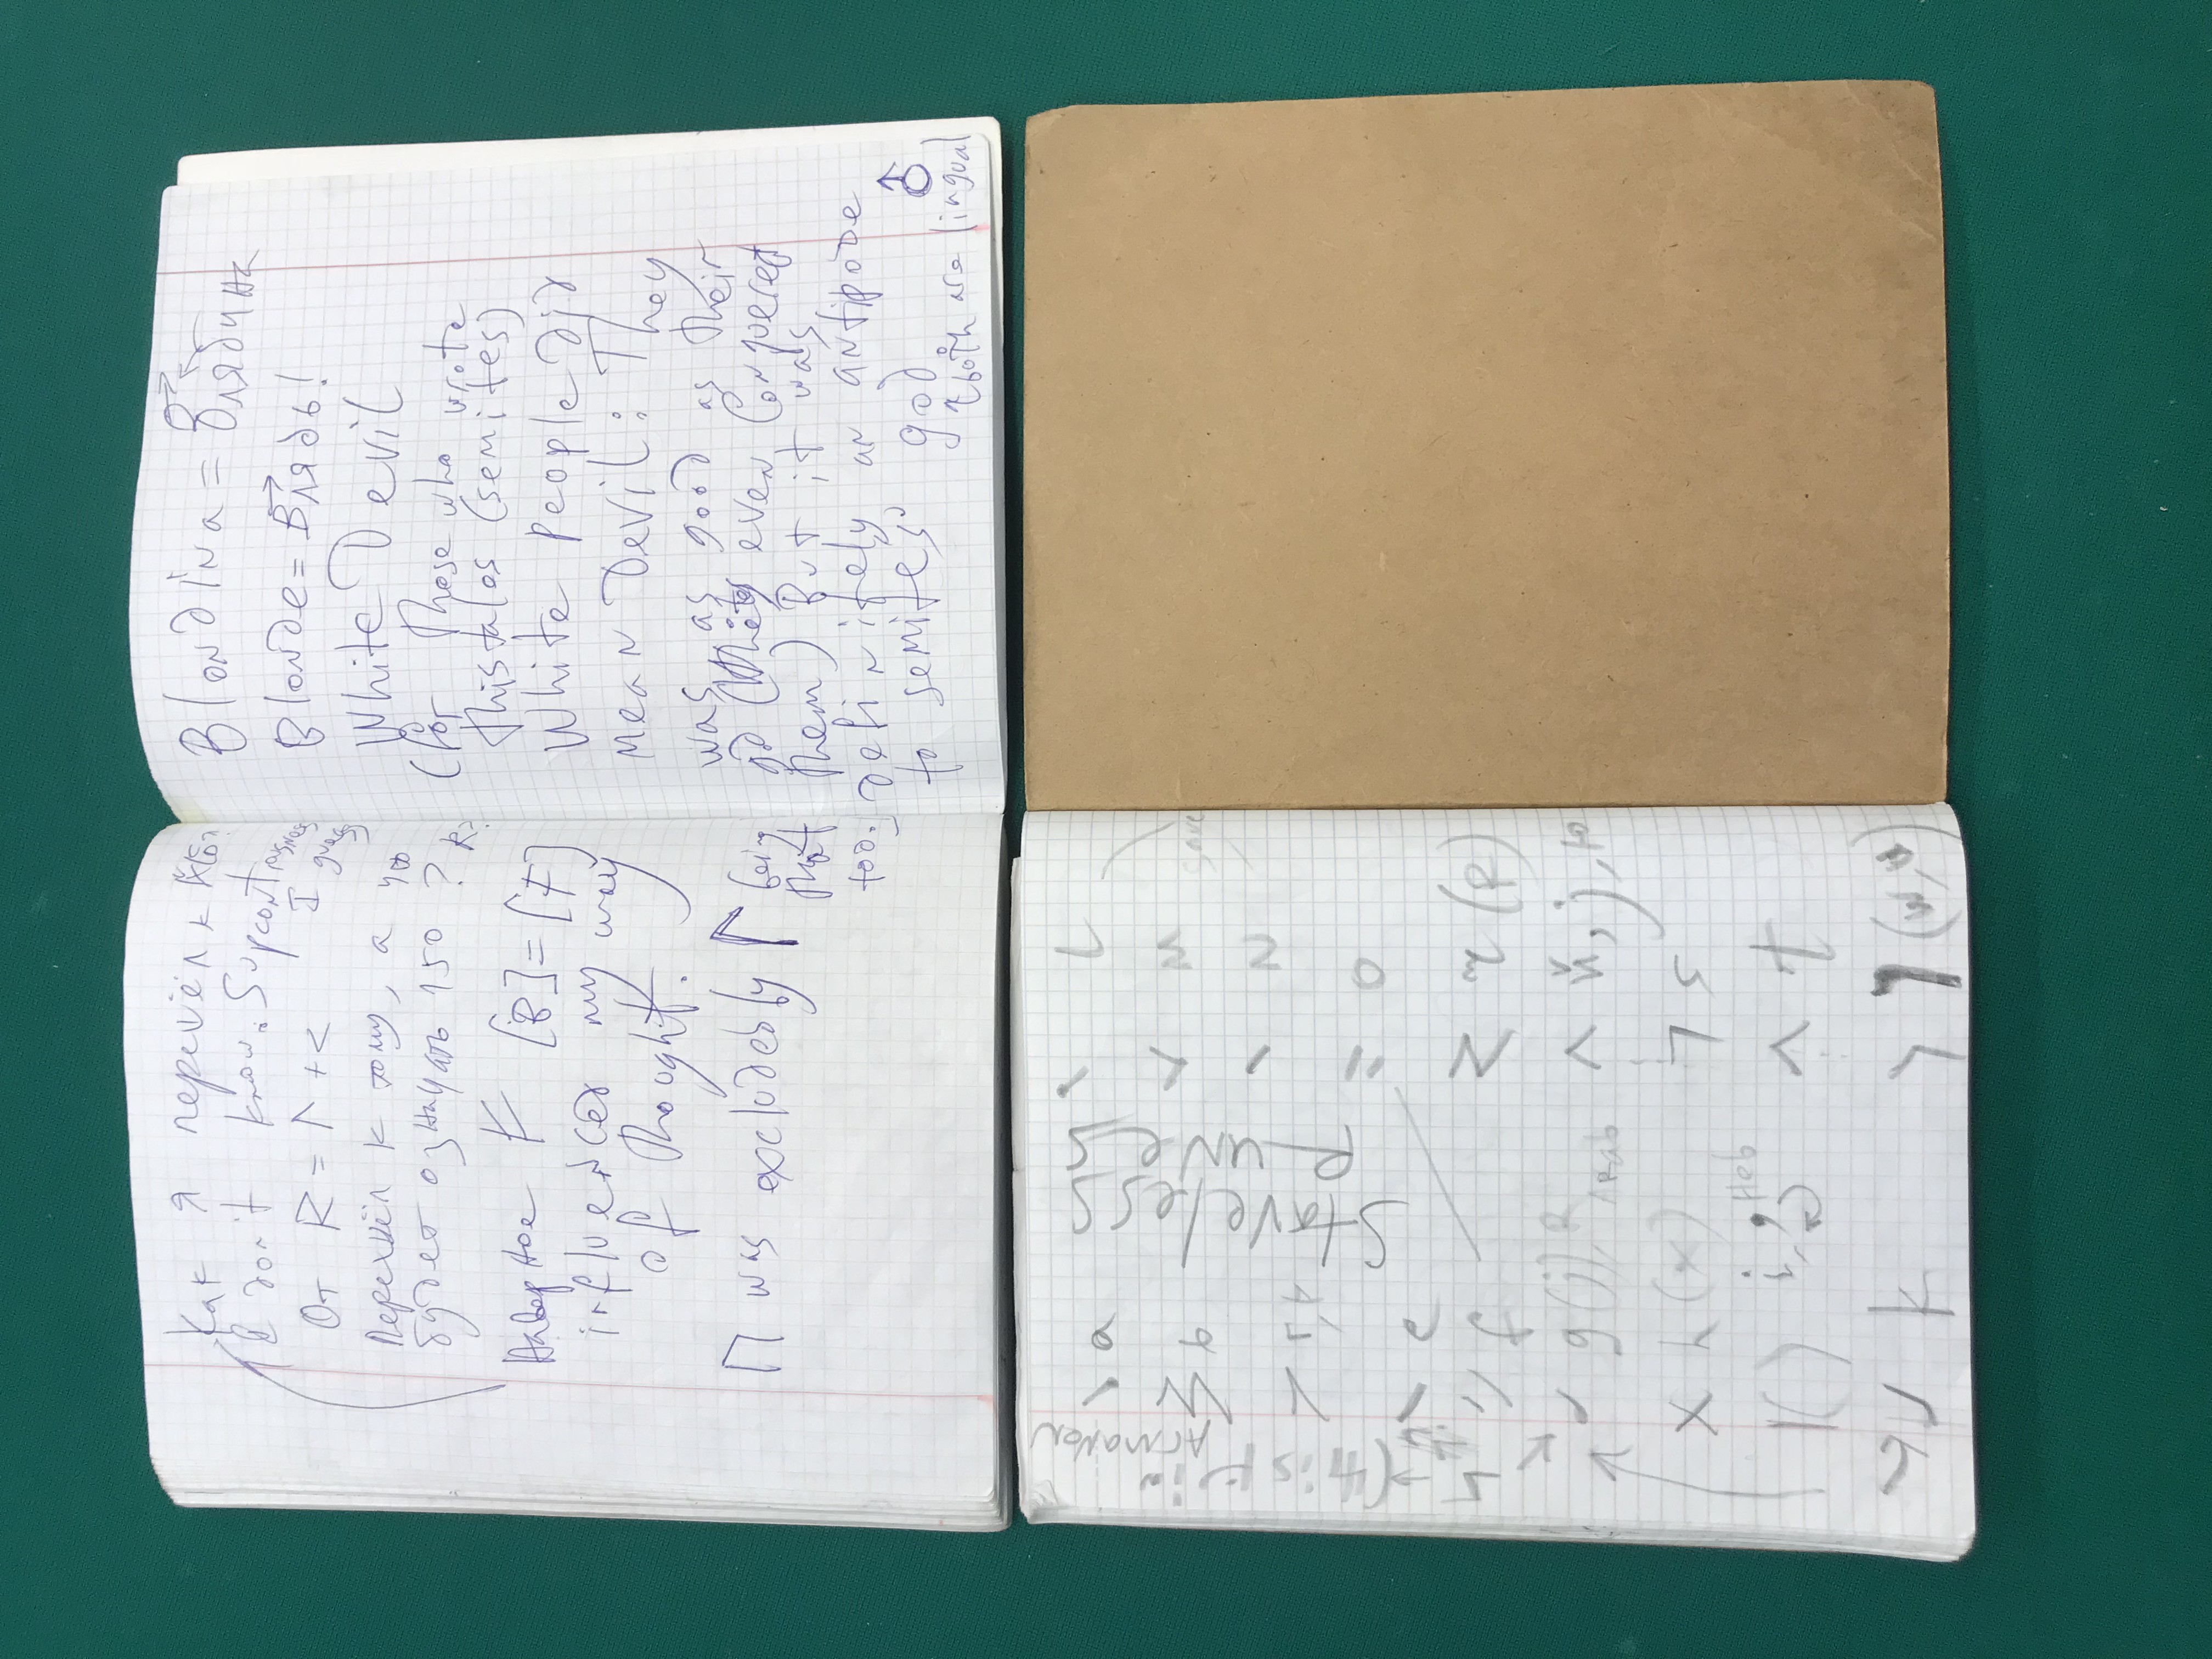 Как я перешёл к
I don't know. Supcontiousness
I guess
От R = Λ + <
перешёл к тому, а что
будет означать 150 ? R?
Наверное F [B] = [F]
influenced my way
of thought.
Π was excluded by Γ being
that
too.
Blondina = Влядина
Blonde = Влядь!
White Devil
(for those who wrote
this tales (semites)
White people did
mean Devil: They
was as good as their
gd (Whites even Conquered
them) But it was
definitely an antipode
to semites' god
♂
both are lingual
Staveless
Runes
(H is F: in
Armanen
a
b
e
f
g (j), R
Arab
x h (x)
Heb
| ( ) i,
k
L
m
n
save
o
r (R)
й, j, ю
s
t
(w, u)